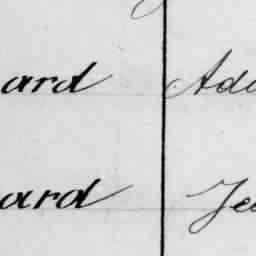 ard Ada
ard Jea